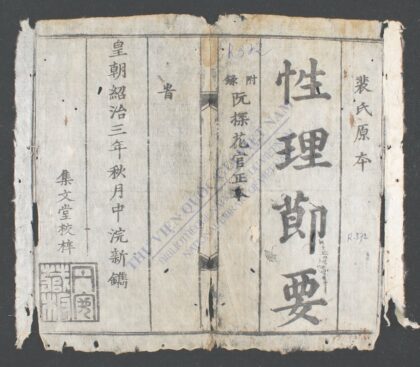 裴氏原本
性理莭要
附錄
阮探花官正夲
旹
皇朝紹治三年秋月中浣新鐫
集文堂校梓
THƯ VIỆN QUỐC GIA VIỆT NAM